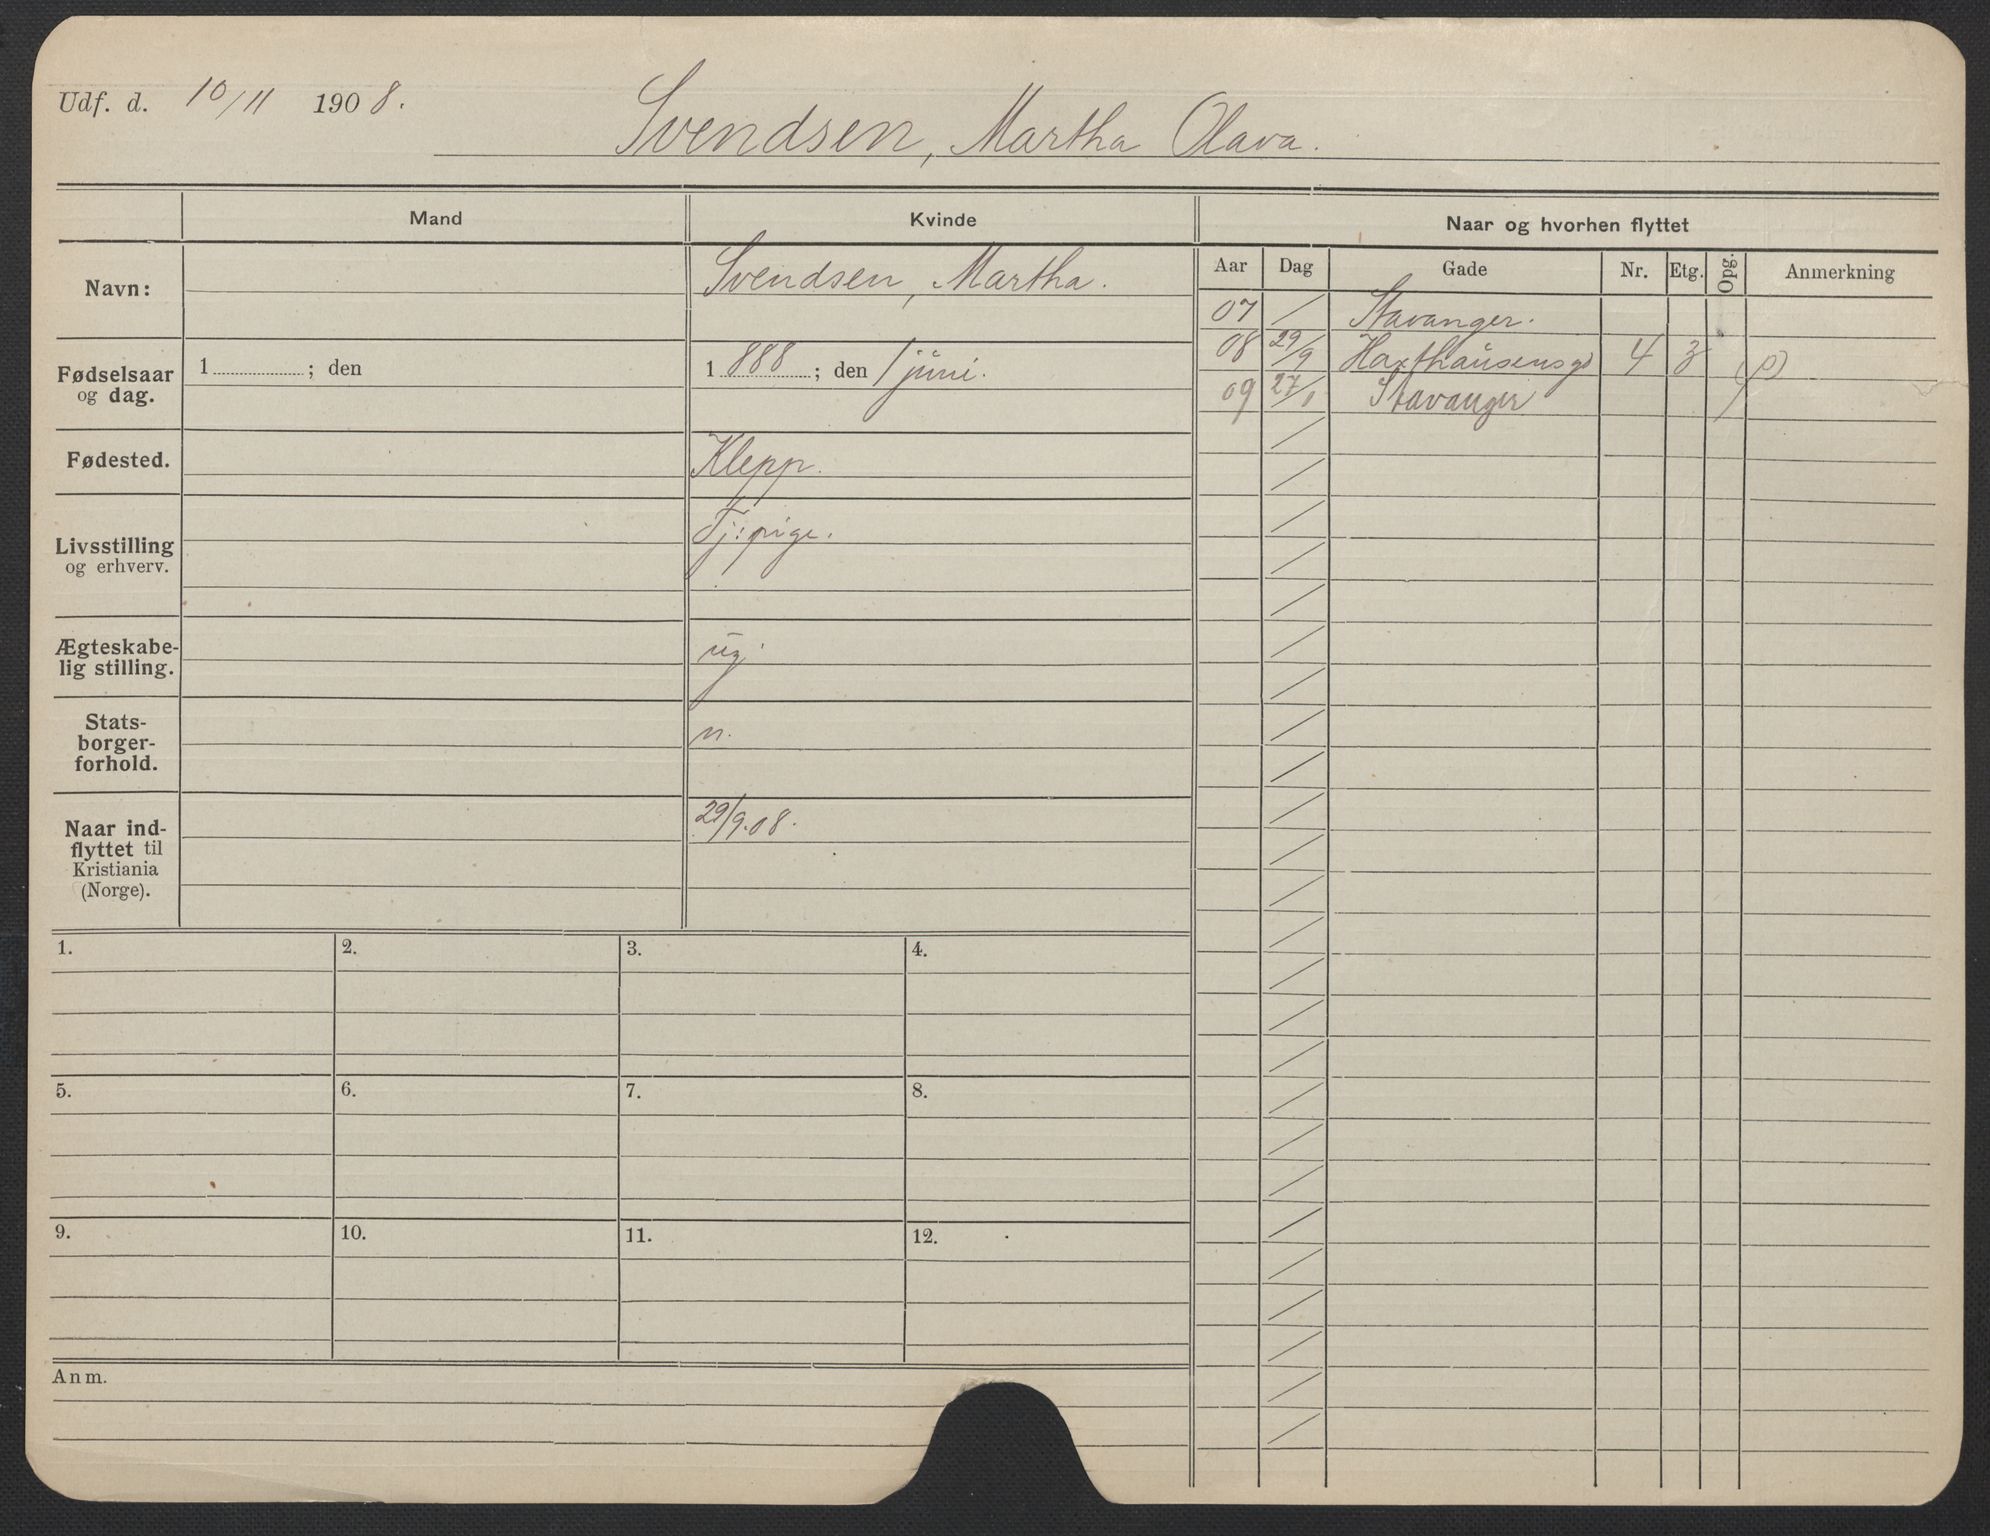 Udf. d. 10/11 1908.
Svendsen, Martha Olava.
Mand
Kvinde
Naar og hvorhen flyttet
Navn:
Svendsen, Martha.
Aar Dag Gade Nr. Etg. Opg. Anmerkning
07 / Stavanger.
08 29/9 Haxthausensgd 4 3 (p)
09 27/1 Stavanger
Fødselsaar
og dag.
1 ; den
1888 ; den 1 juni.
Fødested.
Klepp.
Livsstilling
og erhverv.
Tj: pige.
Ægteskabe-
lig stilling.
ug.
Stats-
borger-
forhold.
n.
Naar ind-
flyttet til
Kristiania
(Norge).
29/9.08.
1. 2. 3. 4.
5. 6. 7. 8.
9. 10. 11. 12.
Anm.